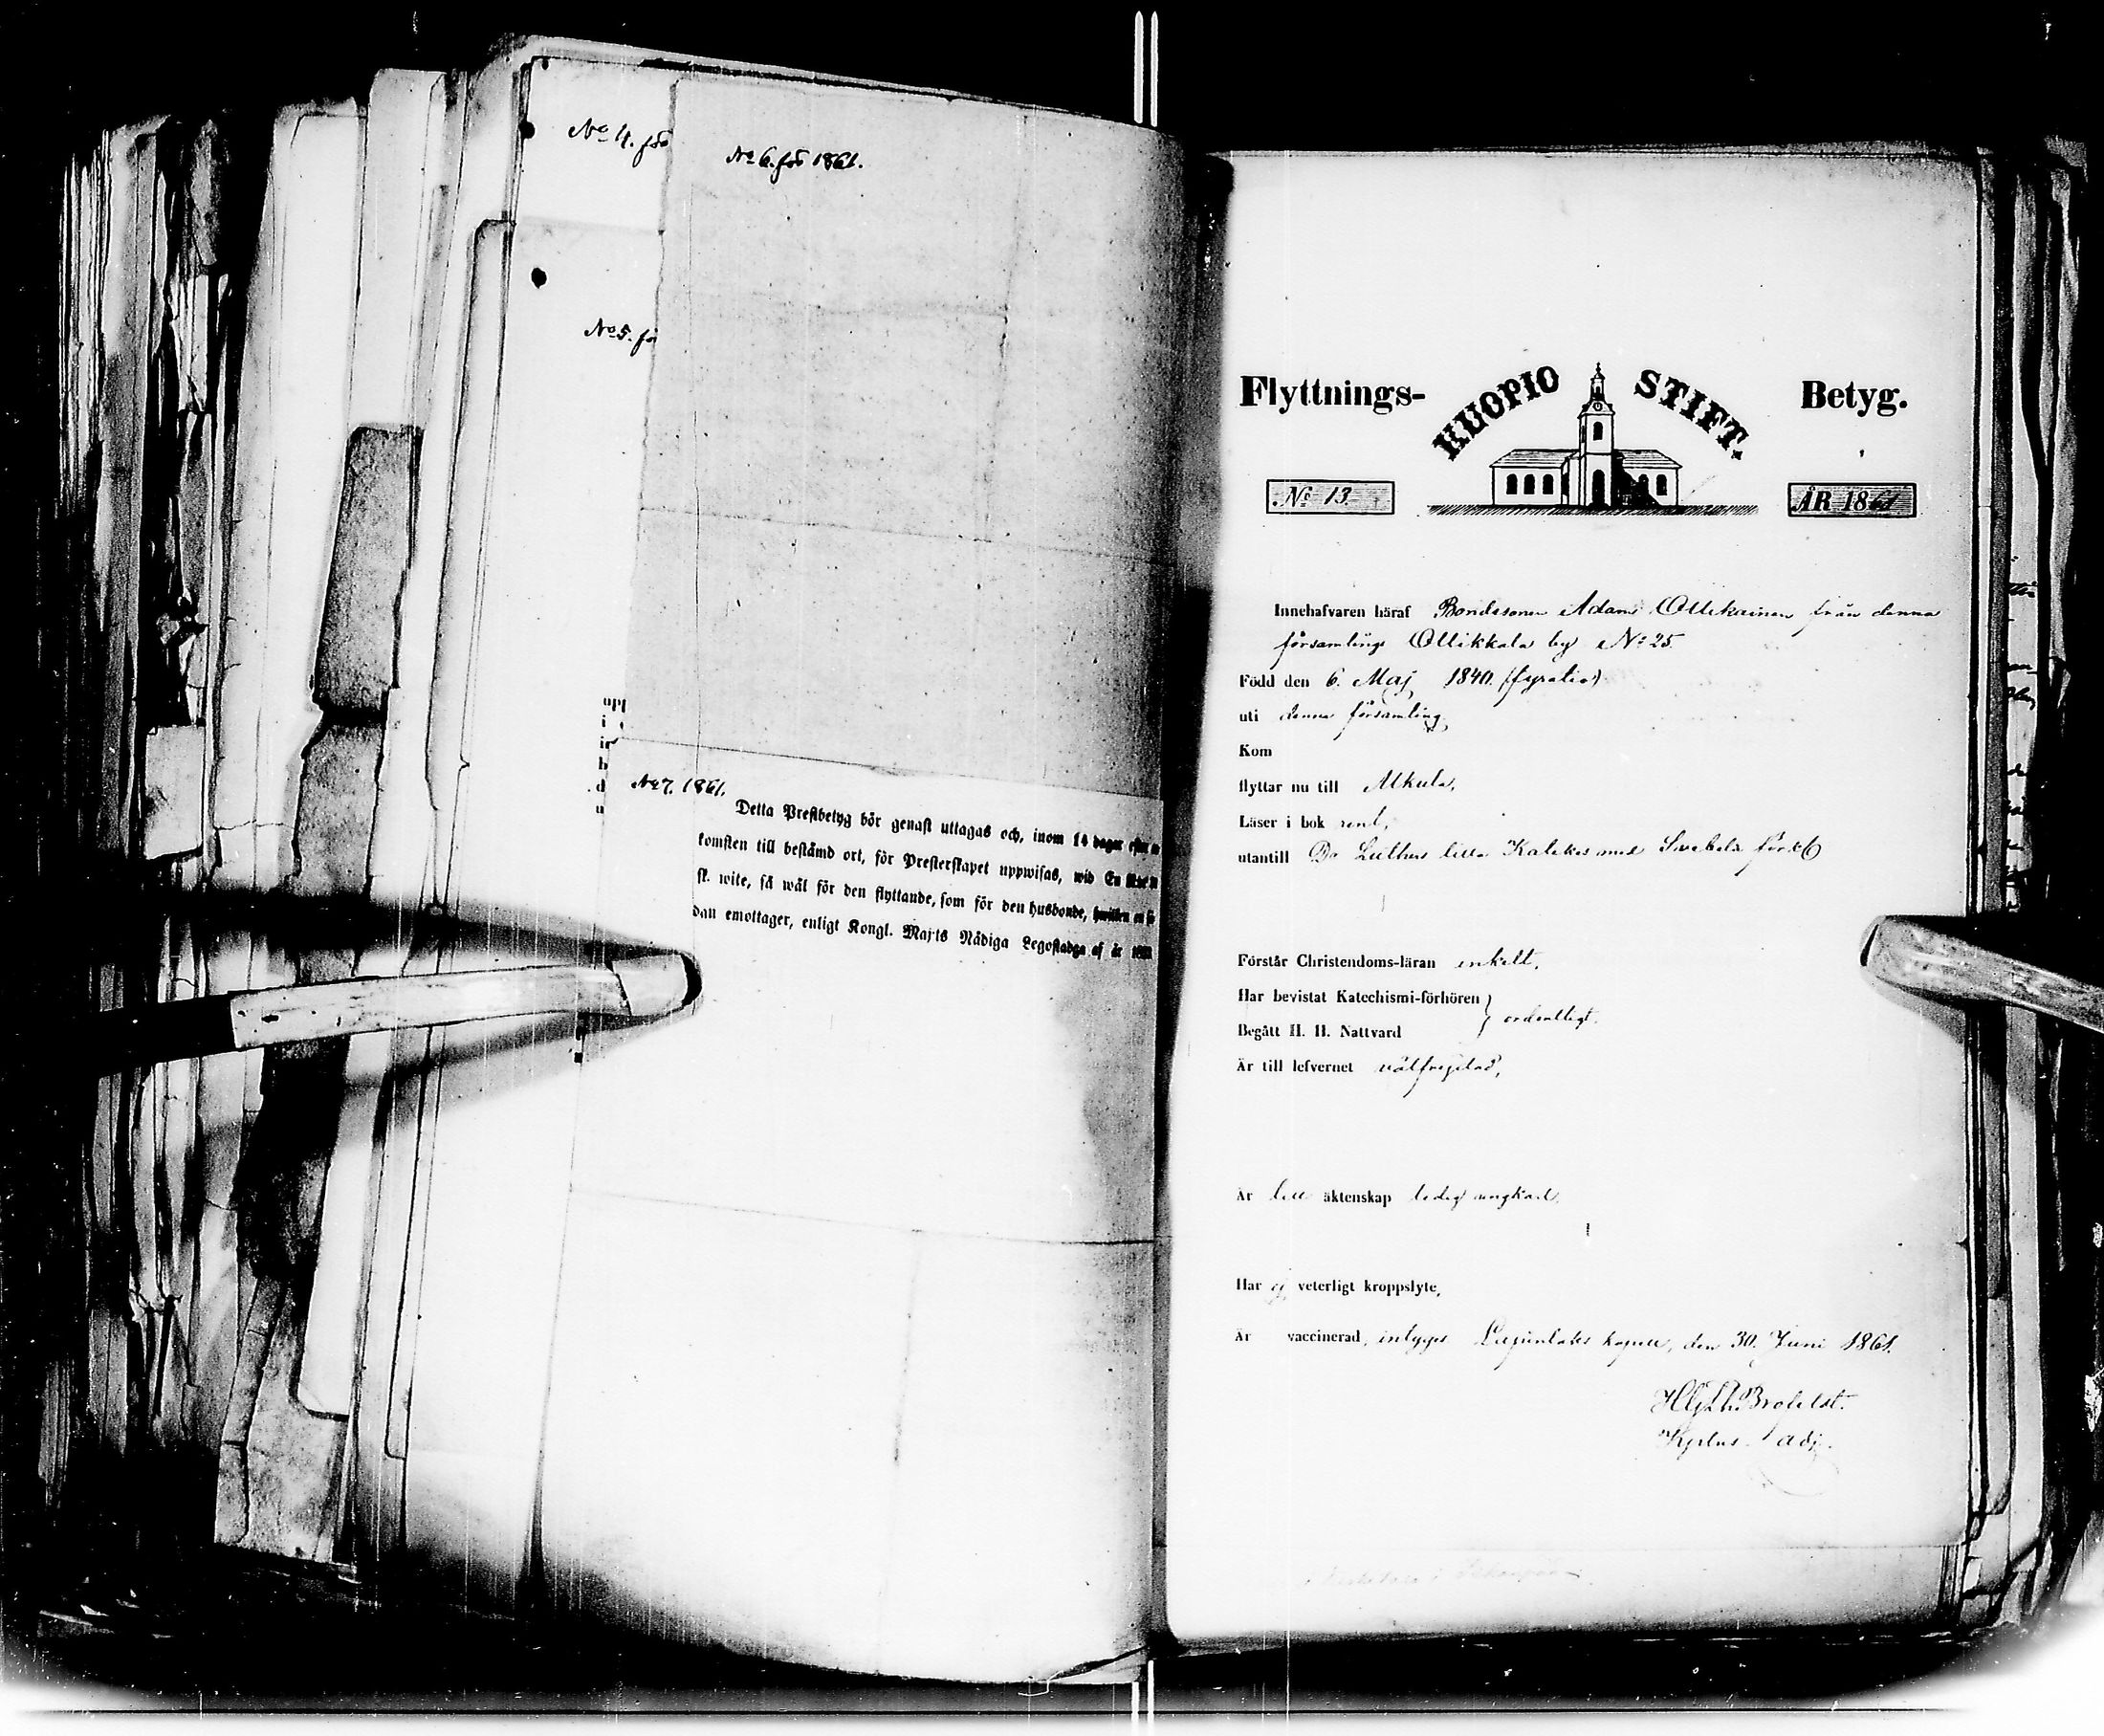 No 4. för
No 6. för 1861.
No 5. för
No 7. 1861.
Detta Prestbetyg bör genast uttagas och, inom 14 dagar efter
komsten till bestämd ort, för Presterskapet uppwisas, wid En
sk. wite, så wäl för den flyttande, som för den husbonde, hwilken en så
dan emottager, enligt Kongl. Maj:ts Nådiga Legostadga af år
Flyttnings- KUOPIO STIFT. Betyg.
No 13. ÅR 1861
Innehafvaren häraf Bondesonen Adam Ollikainen från denna
församlings Ollikkala by No 25.
Född den 6. Maj 1840. (fyratio)
uti denna församling,
Kom
flyttar nu till
Läser i bok rent,
utantill Dr Luthers lilla Katekes med Svebelii
Förstår Christendoms-läran enkelt,
Har bevistat Katechismi-förhören
Begått H. H. Nattvard } ordentligt.
Är till lefvernet välfrejdad,
Är till äktenskap ledig ungkarl,
Har ej veterligt kroppslyte,
Är vaccinerad, intygas kapell, den 30. Juni 1861.
adj.